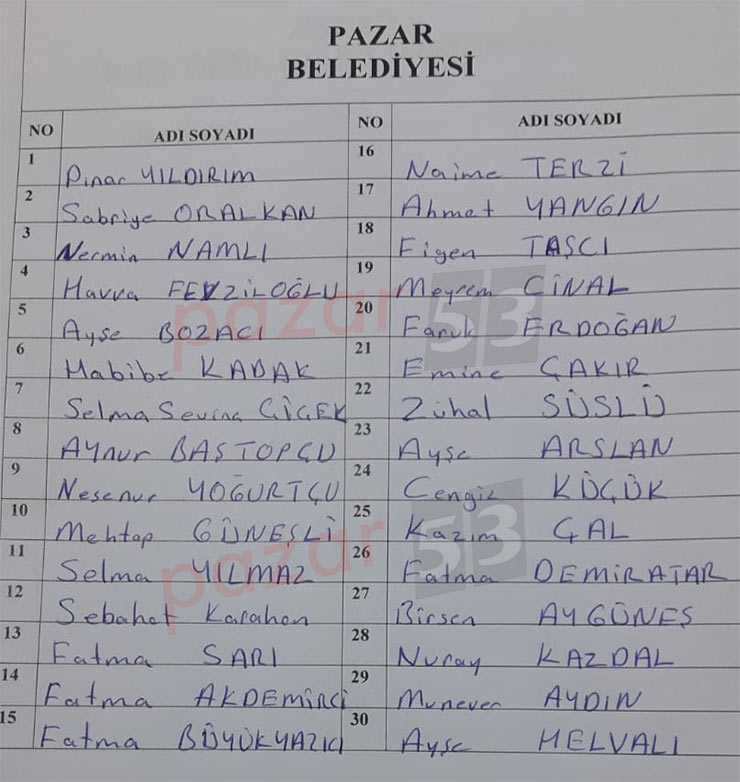 PAZAR
BELEDİYESİ
NO ADI SOYADI NO ADI SOYADI
1 Pınar YILDIRIM
2 Sabriye ORALKAN
3 Nermin NAMLI
4 Havva FEVZİLOĞLU
5 Ayşe BOZACI
6 Habibe KADAK
7 Selma Sevinç ÇİÇEK
8 Aynur BAŞTOPÇU
9 Neşenur YOĞURTÇU
10 Mehtap GÜNEŞLİ
11 Selma YILMAZ
12 Sebahat Karahan
13 Fatma SARI
14 Fatma AKDEMİRCİ
15 Fatma BÜYÜKYAZICI
16 Naime TERZİ
17 Ahmet YANGIN
18 Figen TAŞCI
19 Meyrem ÇİNAL
20 Faruk ERDOĞAN
21 Emine ÇAKIR
22 Zühal SÜSLÜ
23 Ayşe ARSLAN
24 Cengiz KÜÇÜK
25 Kazım ÇAL
26 Fatma DEMİRATAR
27 Birsen AYGÜNEŞ
28 Nuray KAZDAL
29 Munever AYDIN
30 Ayşe HELVALI
pazar 53
pazar 53